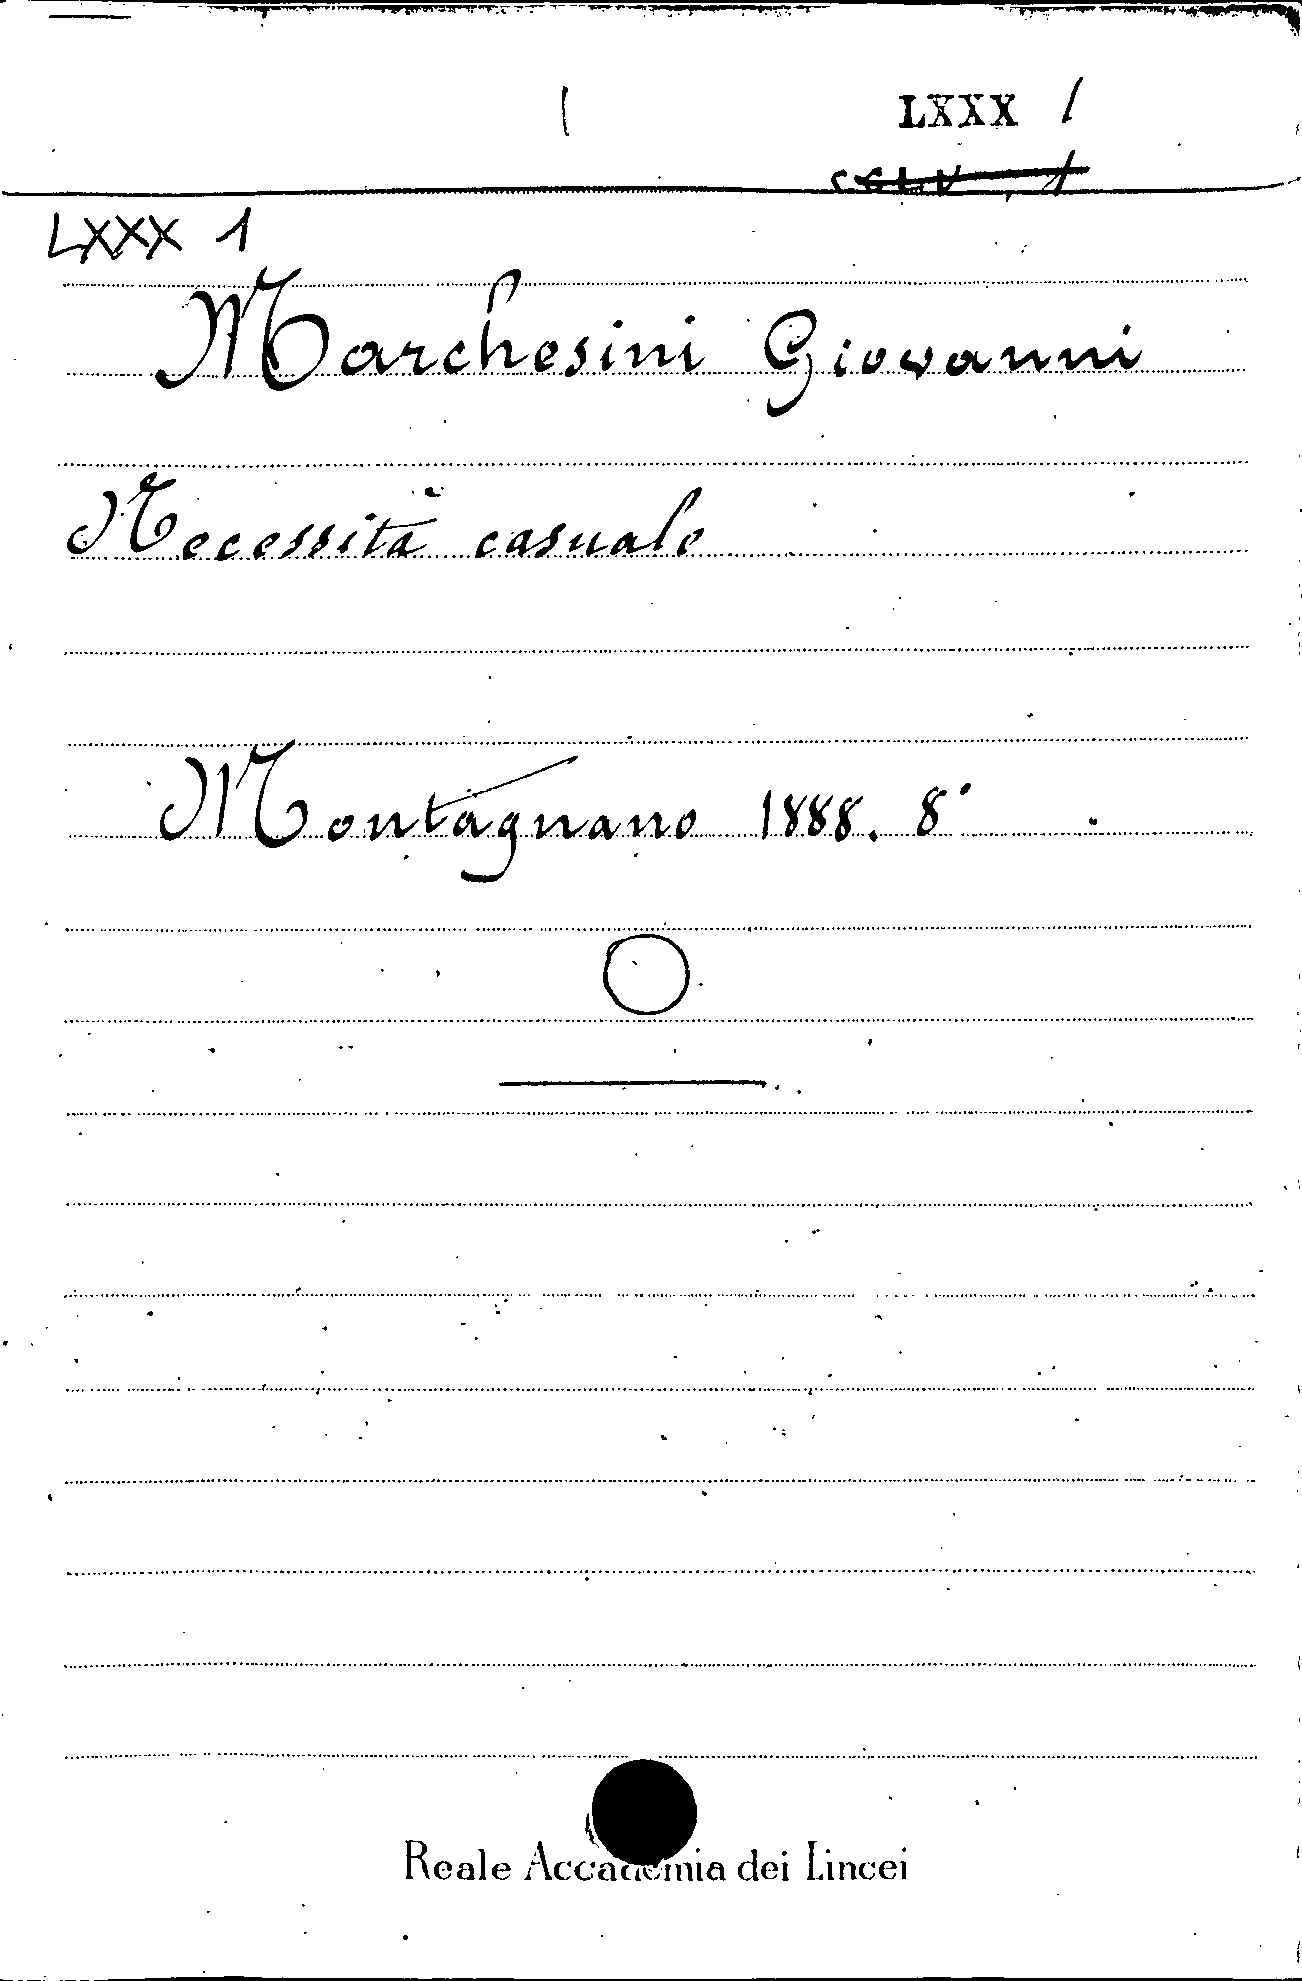 LXXX 1
LXXX 1
Marchesini Giovanni
Necessità casuale
Montagnano 1888. 8°
Reale Accademia dei Lincei